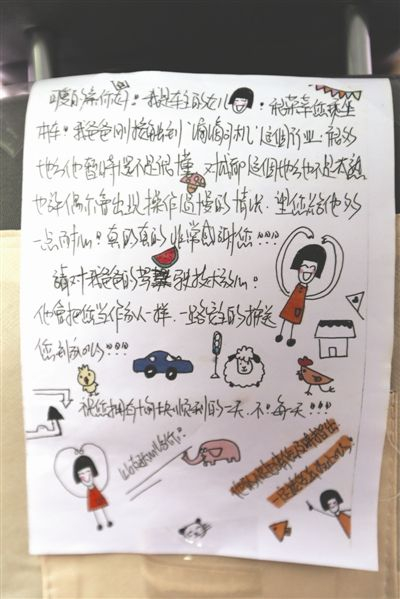 可爱的亲你好：我是车主的女儿：很荣幸您乘坐
本车。我爸爸刚接触到"滴滴司机"这个行业，很多
地方他暂时还不是很懂，对成都这个地方他不是太熟
也许偶尔会出现操作过慢的情况，望您给他多
一点耐心！真的真的非常感谢您!!!
请对我爸爸的驾驶技术放心：
他会把您当作家人一样，一路安全的护送
您到目的地!!!
祝您拥有十分愉快顺利的一天，不！每一天!!!